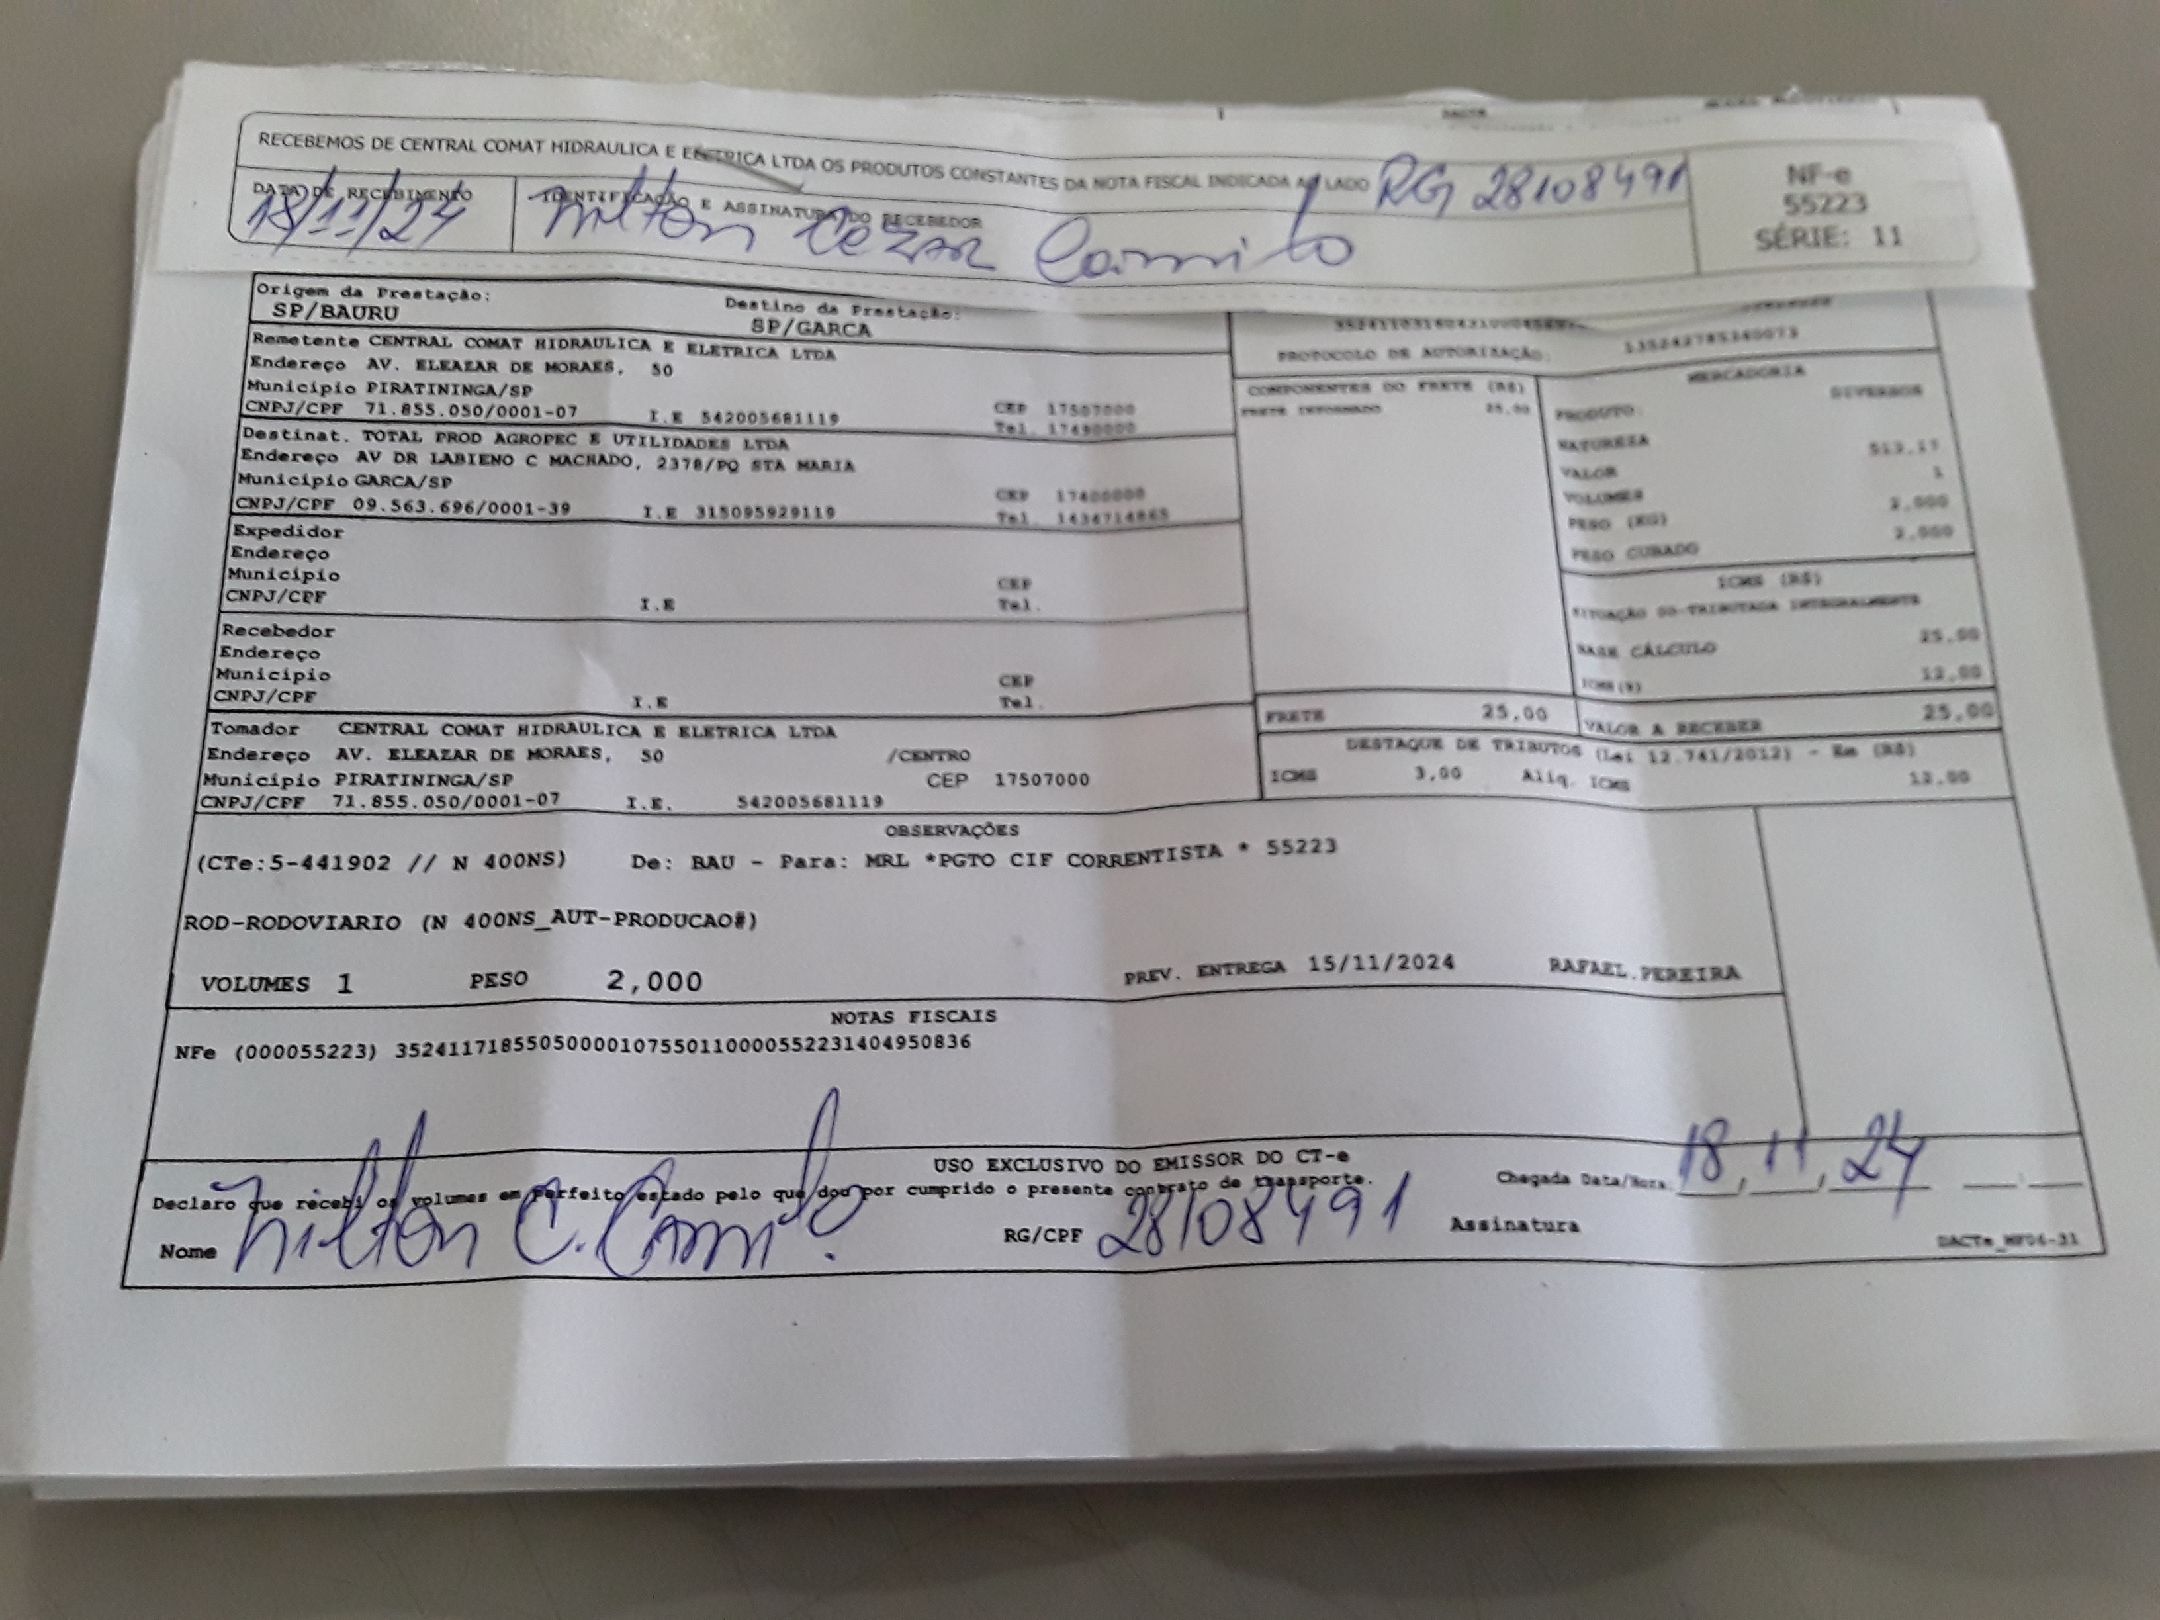 RECEBEMOS DE CENTRAL COMAT HIDRAULICA E ELETRICA LTDA OS PRODUTOS CONSTANTES DA NOTA FISCAL INDICADA AO LADO RG 28108491
NF-e
55223
SÉRIE: 11
DATA DE RECEBIMENTO IDENTIFICAÇÃO E ASSINATURA DO RECEBEDOR
18/11/24 Nilton Cezar Camilo
Origem da Prestação: Destino da Prestação:
SP/BAURU SP/GARCA
Remetente CENTRAL COMAT HIDRAULICA E ELETRICA LTDA
Endereço AV. ELEAZAR DE MORAES, 50
Municipio PIRATININGA/SP CEP 17507000
CNPJ/CPF 71.855.050/0001-07 I.E 542005681119 Tel. 17490000
Destinat. TOTAL PROD AGROPEC E UTILIDADES LTDA
Endereço AV DR LABIENO C MACHADO, 2378/PQ STA MARIA
Municipio GARCA/SP CEP 17400000
CNPJ/CPF 09.563.696/0001-39 I.E 315095929119 Tel. 1434714865
Expedidor
Endereço
Municipio CEP
CNPJ/CPF I.E Tel.
Recebedor
Endereço
Municipio CEP
CNPJ/CPF I.E Tel.
Tomador CENTRAL COMAT HIDRAULICA E ELETRICA LTDA
Endereço AV. ELEAZAR DE MORAES, 50 /CENTRO
Municipio PIRATININGA/SP CEP 17507000
CNPJ/CPF 71.855.050/0001-07 I.E. 542005681119
PROTOCOLO DE AUTORIZAÇÃO: 135242785340073
COMPONENTES DO FRETE (R$)
FRETE INFORMADO 25,00
MERCADORIA
PRODUTO: DIVERSOS
NATUREZA
VALOR 513,17
VOLUMES 1
PESO (KG) 2,000
PESO CUBADO 2,000
ICMS (R$)
SITUAÇÃO 00-TRIBUTADA INTEGRALMENTE
BASE CÁLCULO 25,00
ICMS(%) 12,00
FRETE 25,00 VALOR A RECEBER 25,00
DESTAQUE DE TRIBUTOS (Lei 12.741/2012) - Em (R$)
ICMS 3,00 Aliq. ICMS 12.00
OBSERVAÇÕES
(CTe:5-441902 // N 400NS) De: BAU - Para: MRL *PGTO CIF CORRENTISTA * 55223
ROD-RODOVIARIO (N 400NS_AUT-PRODUCAO#)
VOLUMES 1 PESO 2,000 PREV. ENTREGA 15/11/2024 RAFAEL.PEREIRA
NOTAS FISCAIS
NFe (000055223) 35241171855050000107550110000552231404950836
USO EXCLUSIVO DO EMISSOR DO CT-e
Declaro que recebi os volumes em perfeito estado pelo que dou por cumprido o presente contrato de transporte. Chegada Data/Hora 18, 11, 24
Nome Nilton C. Camilo RG/CPF 28108491 Assinatura
DACTe_MF06-31